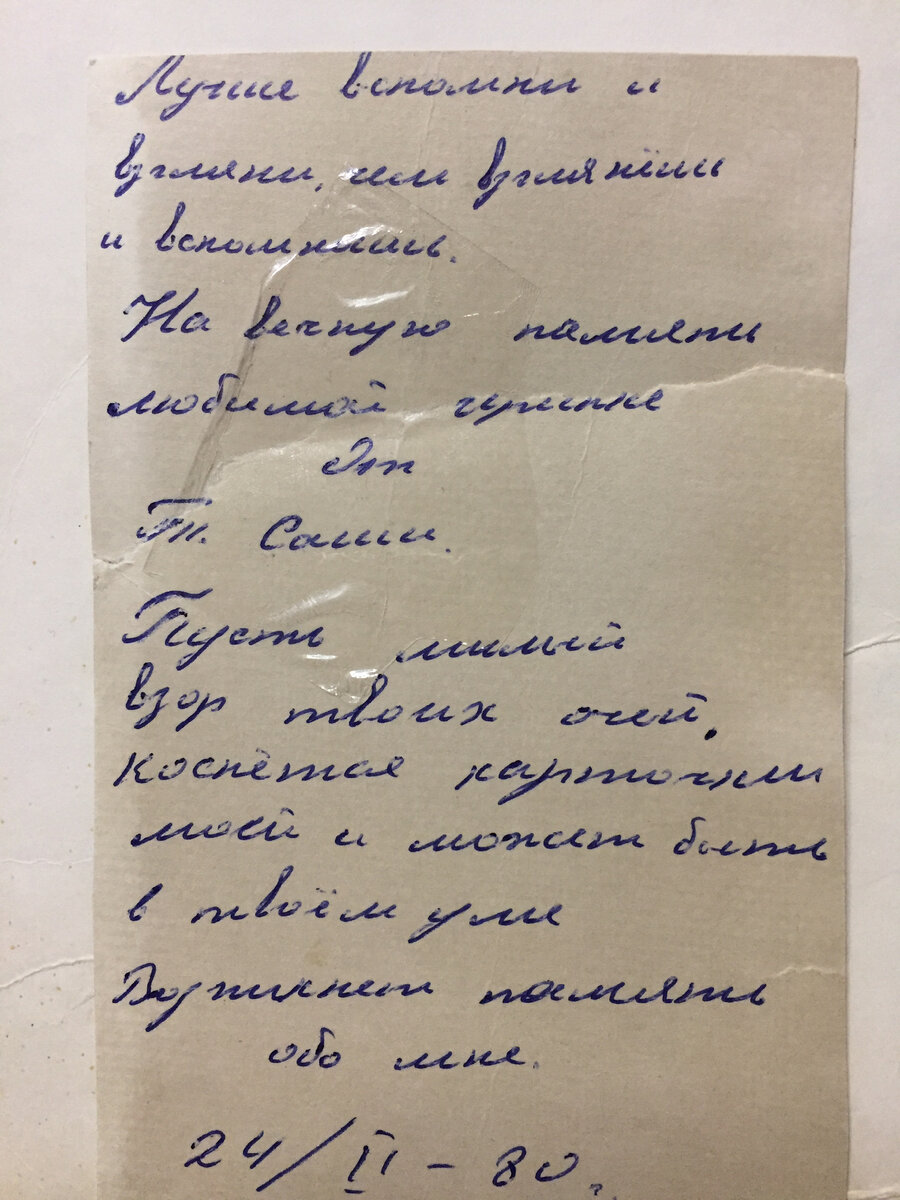 Лучше вспомни и
взгляни, чем взглянёшь
и вспомнишь.
На вечную память
любимой
От
Т. Саши.
Пусть милый
взор твоих очей,
коснётся карточки
моей и может быть
в твоём уме
Возникнет память
обо мне.
24/II-80г.